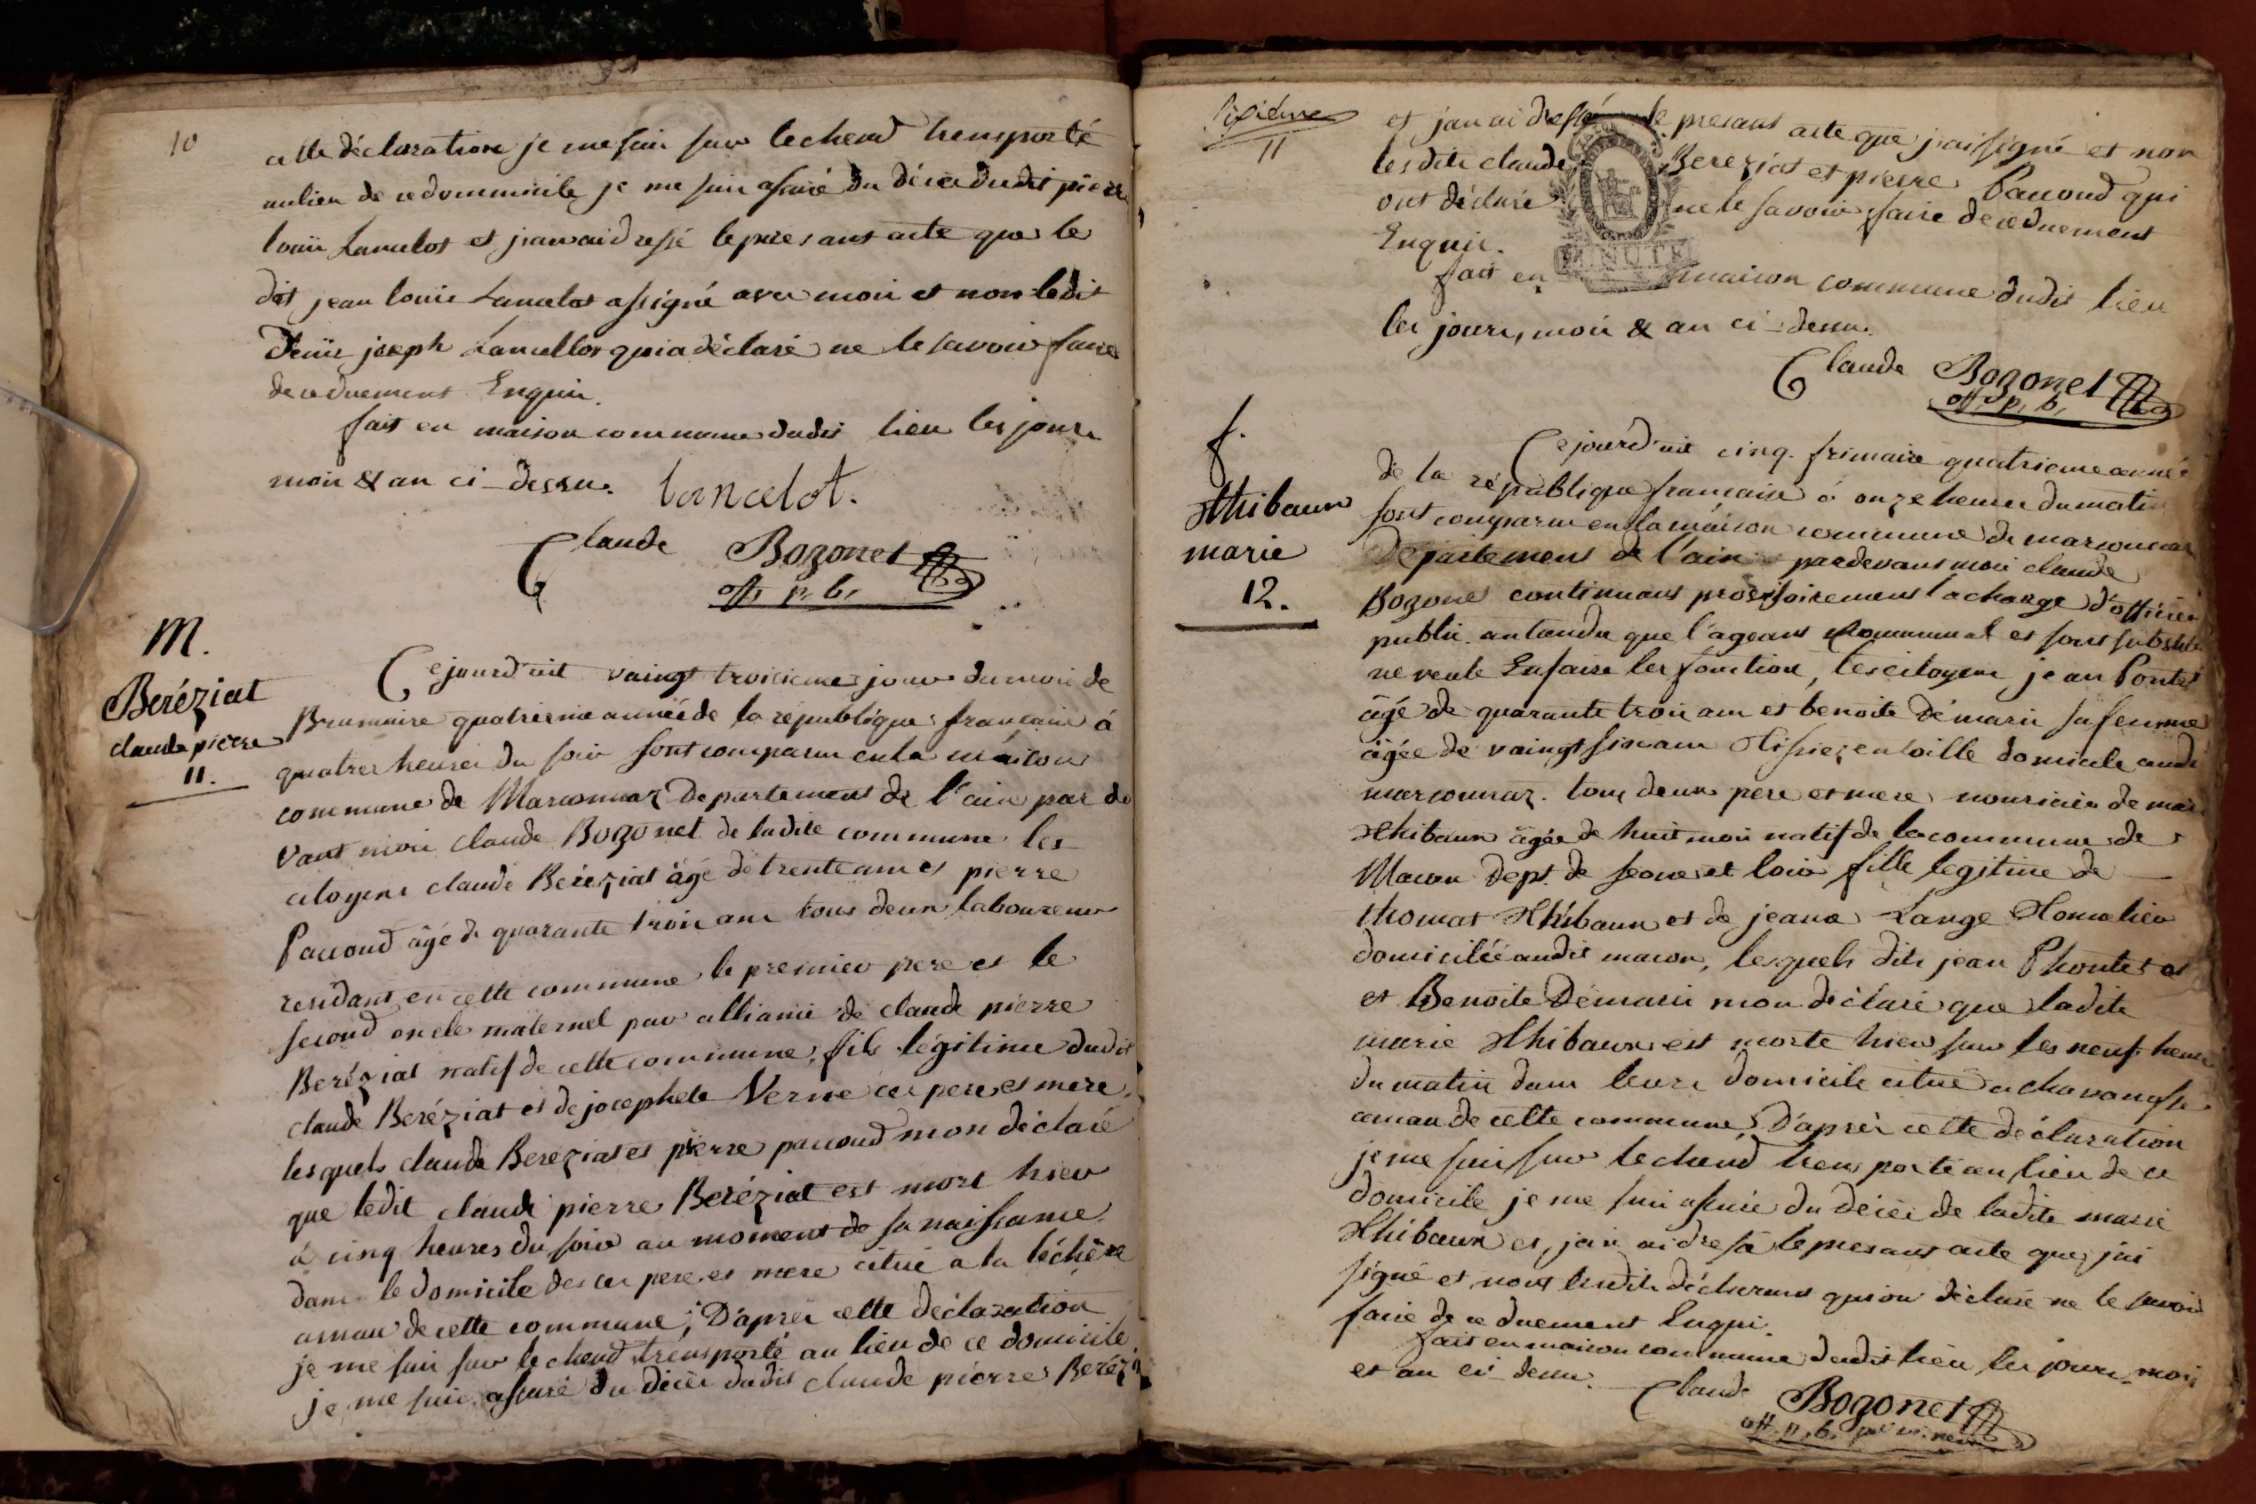 10
cette déclaration je me suis sur lechand trensporté
au lieu de ce dommicile je me suis assuré du décé dudit pierre
louis Lancelot et j'an ai dressé le presant acte que le
dit jean louis Lancelot a signé avec moi et non ledit
Denis joseph Lancellot qui a déclaré ne le savoir faire
de ce duement Enquis.
fait en maison commune dudit lieu les jours
mois & an ci-dessu. Lancelot.
Claude Bozonet
off. p. b.
M.
Beréziat
claude pierre
11.
Cejourd'uit vaingt troisieme jour du mois de
Brumaire quatrieme année de la république francaise à
quatres heures du soir sont comparus en la maison
commune de Marsonnaz Departement de l'ain par de
vant moi claude Bozonet de ladite commune les
citoyens claude Beréziat âgé de trente ans et pierre
Pauoud âgé de quarante trois ans tous deux laboureur
residant en cette commune le premier pere et le
second oncle maternel par alliance de claude pierre
Beréziat natif de cette commune, fils légitime dudit
claude Beréziat et de josephete Verne ces pere et mere.
lesquels claude Bereziat et pierre pauoud mon déclaré
que ledit claude pierre Beréziat est mort hier
à cinq heures du soir au moment de sa naissance
dans le domicile des ces pere et mere citué a la léchère
amau de cette commune; D'apres cette déclaration
je me suis sur lechand trensporté au lieu de ce domicile
je me suis assuré du décés dudit claude pierre Berézi
sixieme
11
et j'an ai dressé le presant acte que j'ai signé et non
lesdits claude Bereziat et pierre Pauoud qui
ont déclaré ne le savoir faire de ce duement
Enquis.
MINUTE
fait en maison commune dudit lieu
les jours, mois & an ci-dessu.
Claude Bozonet
off. p. b.
f.
Thibaun
marie
12.
Cejourd'uit cinq frimaire quatrieme année
de la république francaise à onze heures du matin
sont comparus en la maison commune de marsonnaz
Departement de l'ain pardevant moi claude
Bozonet continuant provisoirement la charge d'officier
public antandu que l'ageant communal et sont substitu
ne veule En faire les fonction, les citoyens jean Pontet
âgé de quarante trois ans et benoite Démaris sa femme
âgée de vaingt six ans Tissiez en toille domiciele audit
marsonnaz. tous deux pere et mere nouriciés de marie
Thibaun âgée de huit mois natif de la commune de
Macon Dept. de seone et loire fille legitime de
thomas Thibaun et de jeane Lange
domiciliée audit macon, lesquels dits jean Phontet
et Benoite Démaris mon déclaré que ladite
marie Thibaun est morte hier sur les neuf heures
du matin dans leurs domicile citué a chavangle
amau de cette commune, D'après cette déclaration
je me suis sur lechand trensporté au lieu de ce
domicile je me suis assuré du décés de ladite marie
Thibaun et j'an ai dressé le presant acte que j'ai
signé et nous lesdits déclarant qui on déclaré ne le savoir
faire de ce duement Enqui.
fait en maison commune dudit lieu les jours, mois
et an ci-dessu. Claude Bozonet
off. p. b.